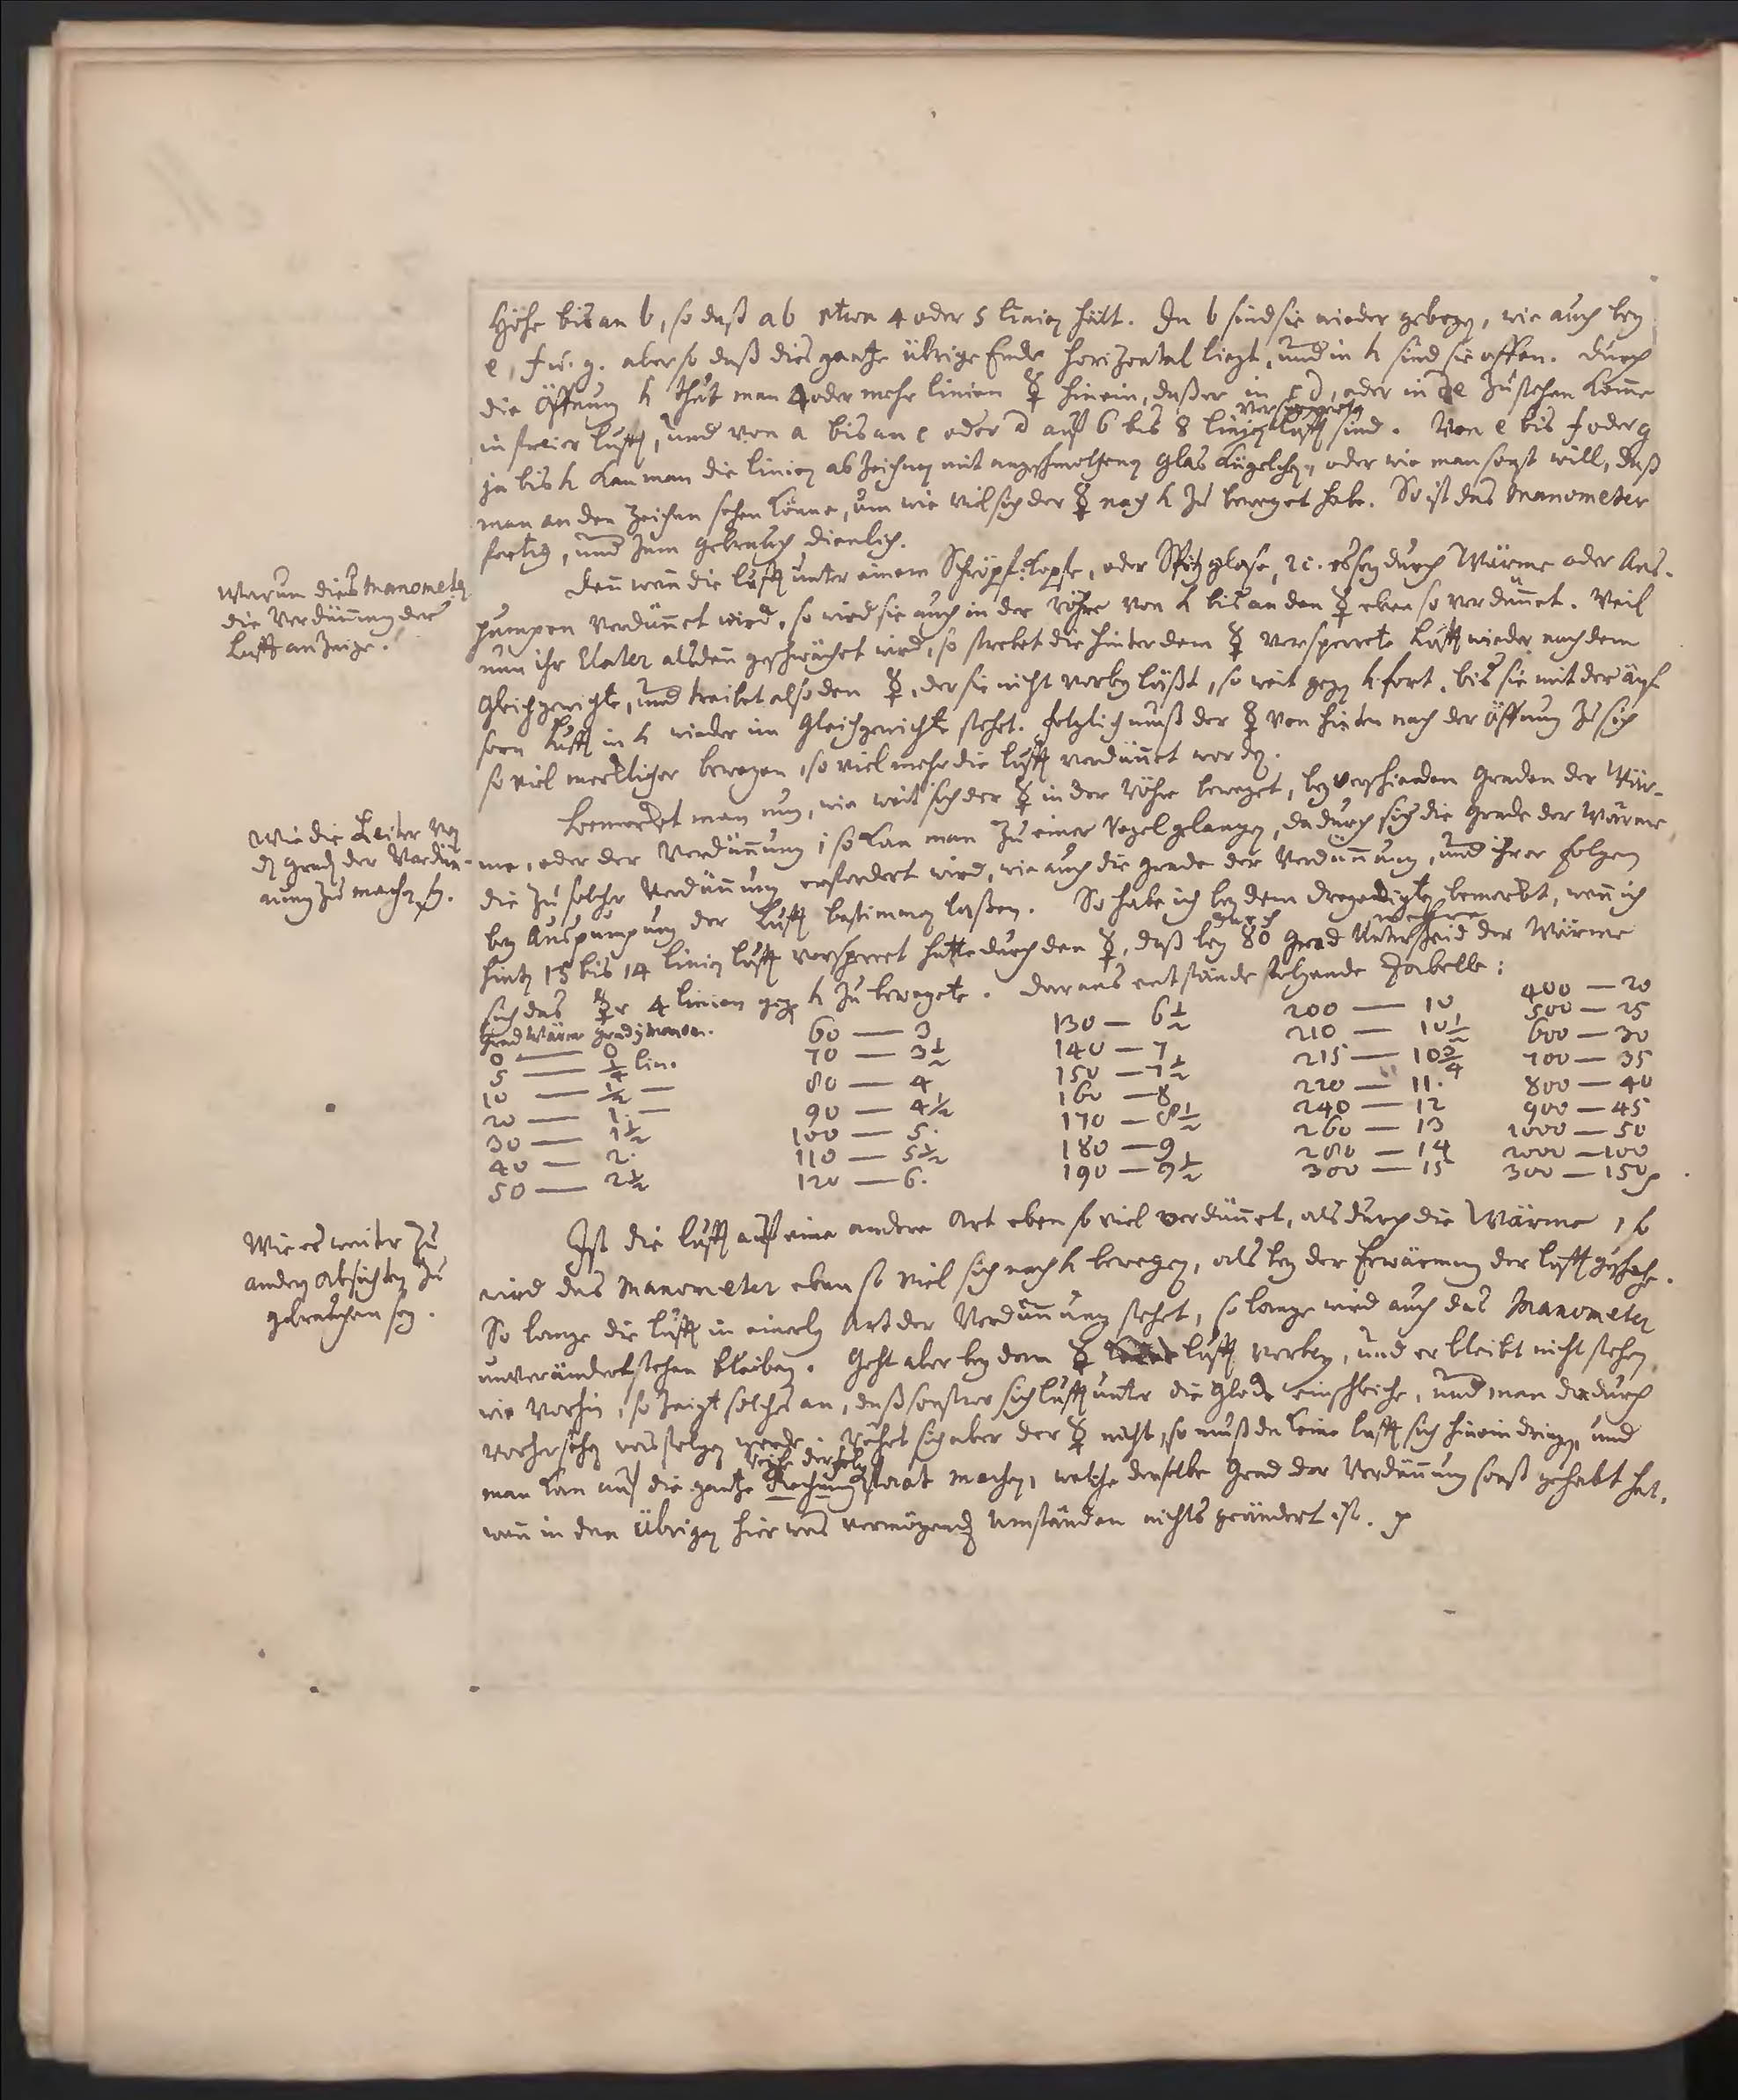 Höhe bis an b, so daß ab etwa 4 oder 5 Linien hält. In b sind sie wieder gebogen, wie auch bey
e, f u. g. aber so daß dies gantze übrige Ende horizontal liegt, und in h sind sie offen. Durch
die Öffnung h thut man 4 oder mehr linien ☿ hinein, daß er in c d, oder in de zu stehen kom̅e
in freier lufft, und von a bis an c oder d auf 6 bis 8 linien versperrete lufft sind. Von e bis f oder g
ja bis h kan man die linien abzeichnen mit angeschmoltzenen Glas kügelchen, oder wie man sonst will, daß
man an den Zeichen sehen könne, um wie viel sich der ☿ nach h zu beweget habe. So ist das Manometer
fertig, und zum Gebrauch dienlich.
Warum dies Manometer
die Verdün̅ung der
Lufft anzeige.
Den̅ wen̅ die lufft unter einem Schröpf-kopfe, oder Spitzglase, ⁊c. es sey durch Wärme oder Aus-
pumpen verdün̅et wird, so wird sie auch in der Röhre von h bis an den ☿ eben so verdün̅et. Weil
nun ihr Elater alsden̅ geschwächet wird, so strebet die hinter dem ☿ versperrete Lufft wieder nach dem
Gleichgewichte, und treibet also den ☿, der sie nicht vorbey läßt, so weit gegen h fort, bis sie mit der äuß
sern Lufft in h wieder im Gleichgewichte stehet. folglich muß der ☿ von hinten nach der Öffnung zu sich
so viel mercklicher bewegen, so viel mehr die lufft verdün̅et worden.
Wie die Leiter von
den Graden der Verdün-
nung zu machen sey.
Bemercket man nun, wie weit sich der ☿ in der Röhre beweget, bey verschieden Graden der Wär-
me, oder der Verdün̅ung; so kan man zu einer Regel gelangen, dadurch sich die Grade der Wärme,
die zu solcher Verdün̅ung erfordert wird, wie auch die Grade der Verdün̅ung, und ihrer folgen
bey Auspumpung der Lufft bestimmen laßen. So habe ich bey dem bemerckt, wen̅ ich
hinten 13 bis 14 linien lufft versperret hatte durch den ☿, daß bey durch 80 Grad Unterscheid der Wärme
sich das ☿r 4 linien gegen h zu bewegete. Daraus entstände folgende Tabelle:
Grad Wärme Grad Manom.
0 — 0
5 — 1/4 lin.
10 — 1/2 —
20 — 1. —
30 — 1 1/2
40 — 2.
50 — 2 1/2
60 — 3
70 — 3 1/2
80 — 4
90 — 4 1/2
100 — 5.
110 — 5 1/2
120 — 6.
130 — 6 1/2
140 — 7
150 — 7 1/2
160 — 8
170 — 8 1/2
180 — 9
190 — 9 1/2
200 — 10
210 — 10 1/2
215 — 10 3/4
220 — 11.
240 — 12
260 — 13
280 — 14
300 — 15
400 — 20
500 — 25
600 — 30
700 — 35
800 — 40
900 — 45
1000 — 50
2000 — 100
300 — 150
Wie es weiter zu
andern Absichten zu
gebrauchen sey.
Ist die lufft auf eine andere Art eben so viel verdün̅et, als durch die Wärme, so
wird das Manometer eben so viel sich nach h bewegen, als bey der Erwärmung der lufft geschahe.
So lange die lufft in einerley Art der Verdün̅ung stehet, so lange wird auch das Manometer
unverändert stehen bleiben. Geht aber bey dem ☿ lufft vorbey, und er bleibt nicht stehen,
wie vorhin, so zeigt solches an, daß sonstwo sich lufft unter die Glocke einschleiche, und man dadurch
vorhersehen was folgen werde. Rühret sich aber der ☿ nicht, so muß da keine lufft sich hinein dringen, und
man kan auf die gantze Rechnung Staat machen, welche derselbe Grad der Verdün̅ung sonst gehabt hat,
wen̅ in den übrigen hier was vermögenden Umständen nichts geändert ist.